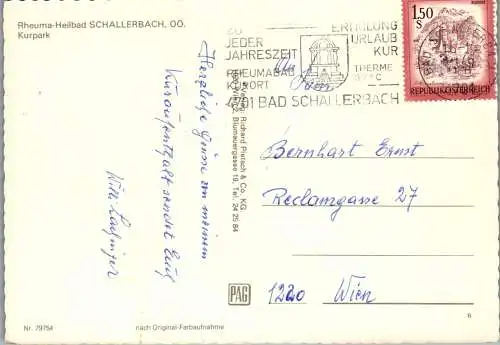 Rheuma-Heilbad SCHALLERBACH, OÖ.
Kurpark
ZU
JEDER
JAHRESZEIT
RHEUMABAD
KURORT
ERHOLUNG
URLAUB
KUR
THERME
37°C
4701 BAD SCHALLERBACH
1,50
S
REPUBLIK ÖSTERREICH
Herzliche Grüsse von meinem
Kuraufenthalt sendet Euch
Willi
Richard Pietsch & Co. KG
Blumauergasse 19, Tel. 24 25 84
PAG
An
Fam.
Bernhart Ernst
Reclamgasse 27
1220 Wien
Nr. 79754
nach Original-Farbaufnahme